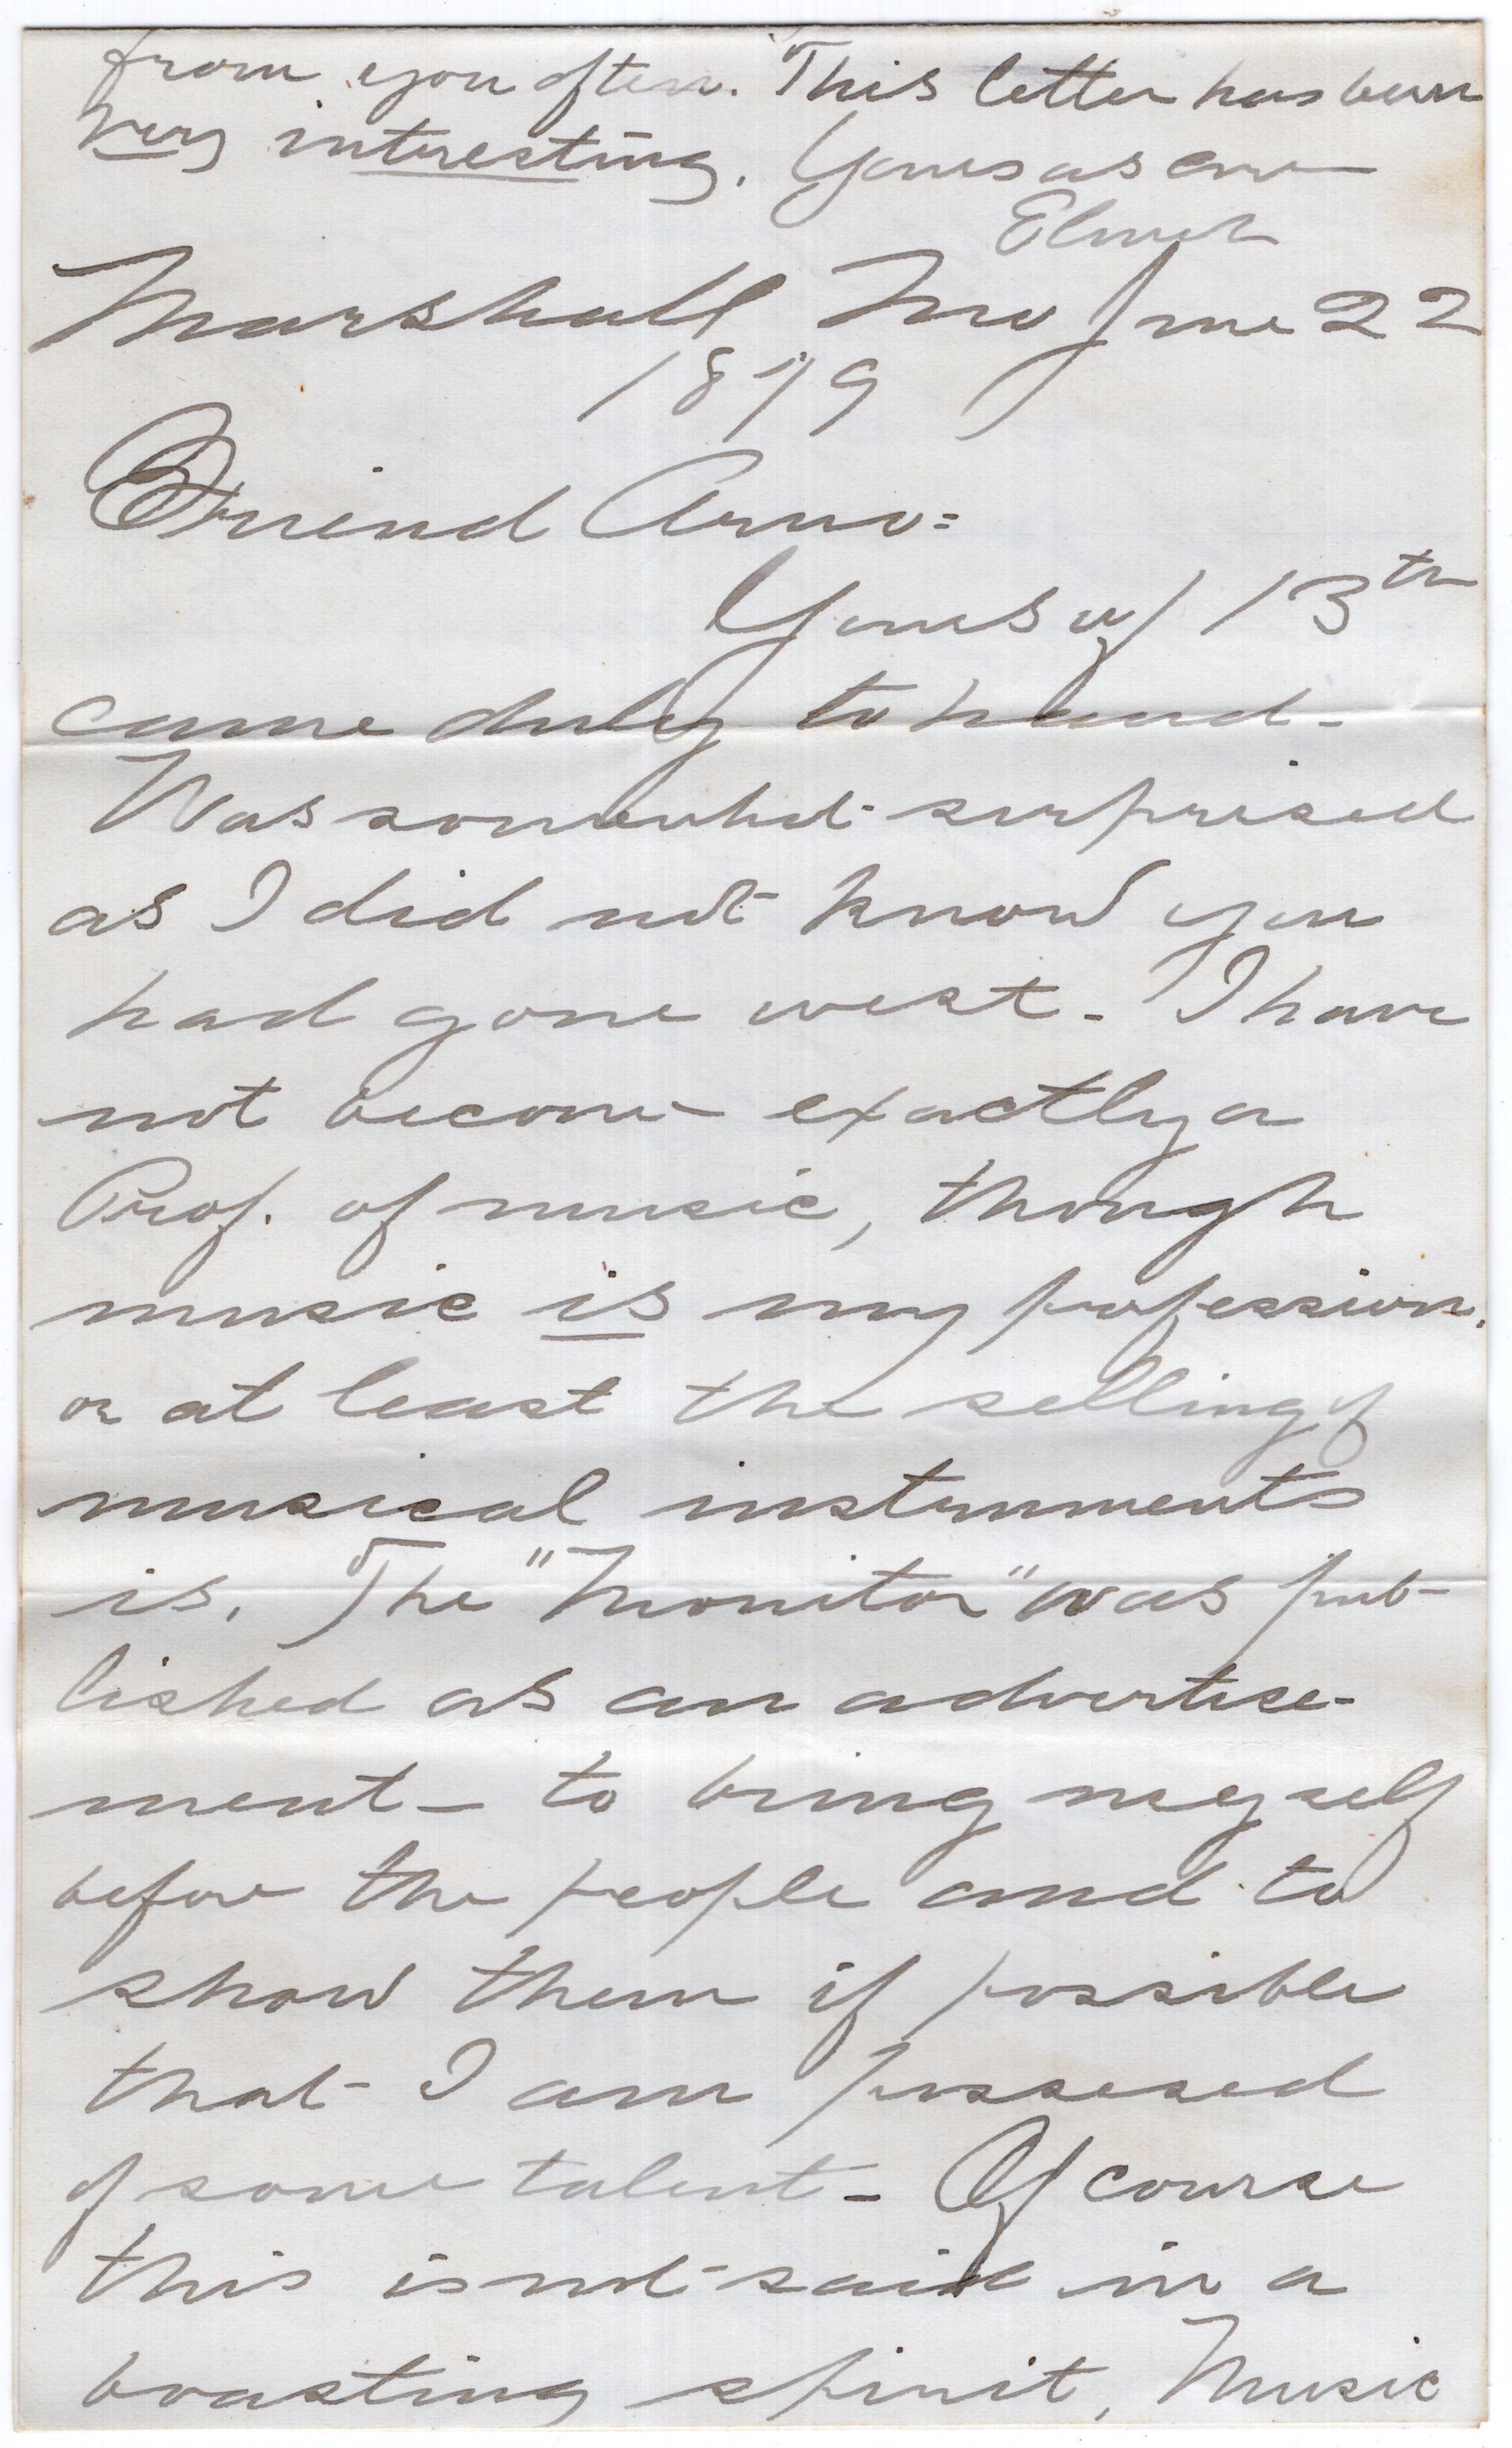 from you often. This letter has been
very interesting. Yours as ever
Elmer
Marshall Mo June 22
1879
Friend Arno:
Yours of 13th
came duly to hand-
Was somewhat surprised
as I did not know you
had gone west - I have
not become exactly a
Prof. of music, though
music is my profession.
or at least the selling of
musical instruments
is. The "Monitor" was pub-
lished as an advertise-
ment - to bring myself
before the people and to
show them if possible
that I am possesed
of some talent - Of course
this is not said in a
boasting spirit, Music